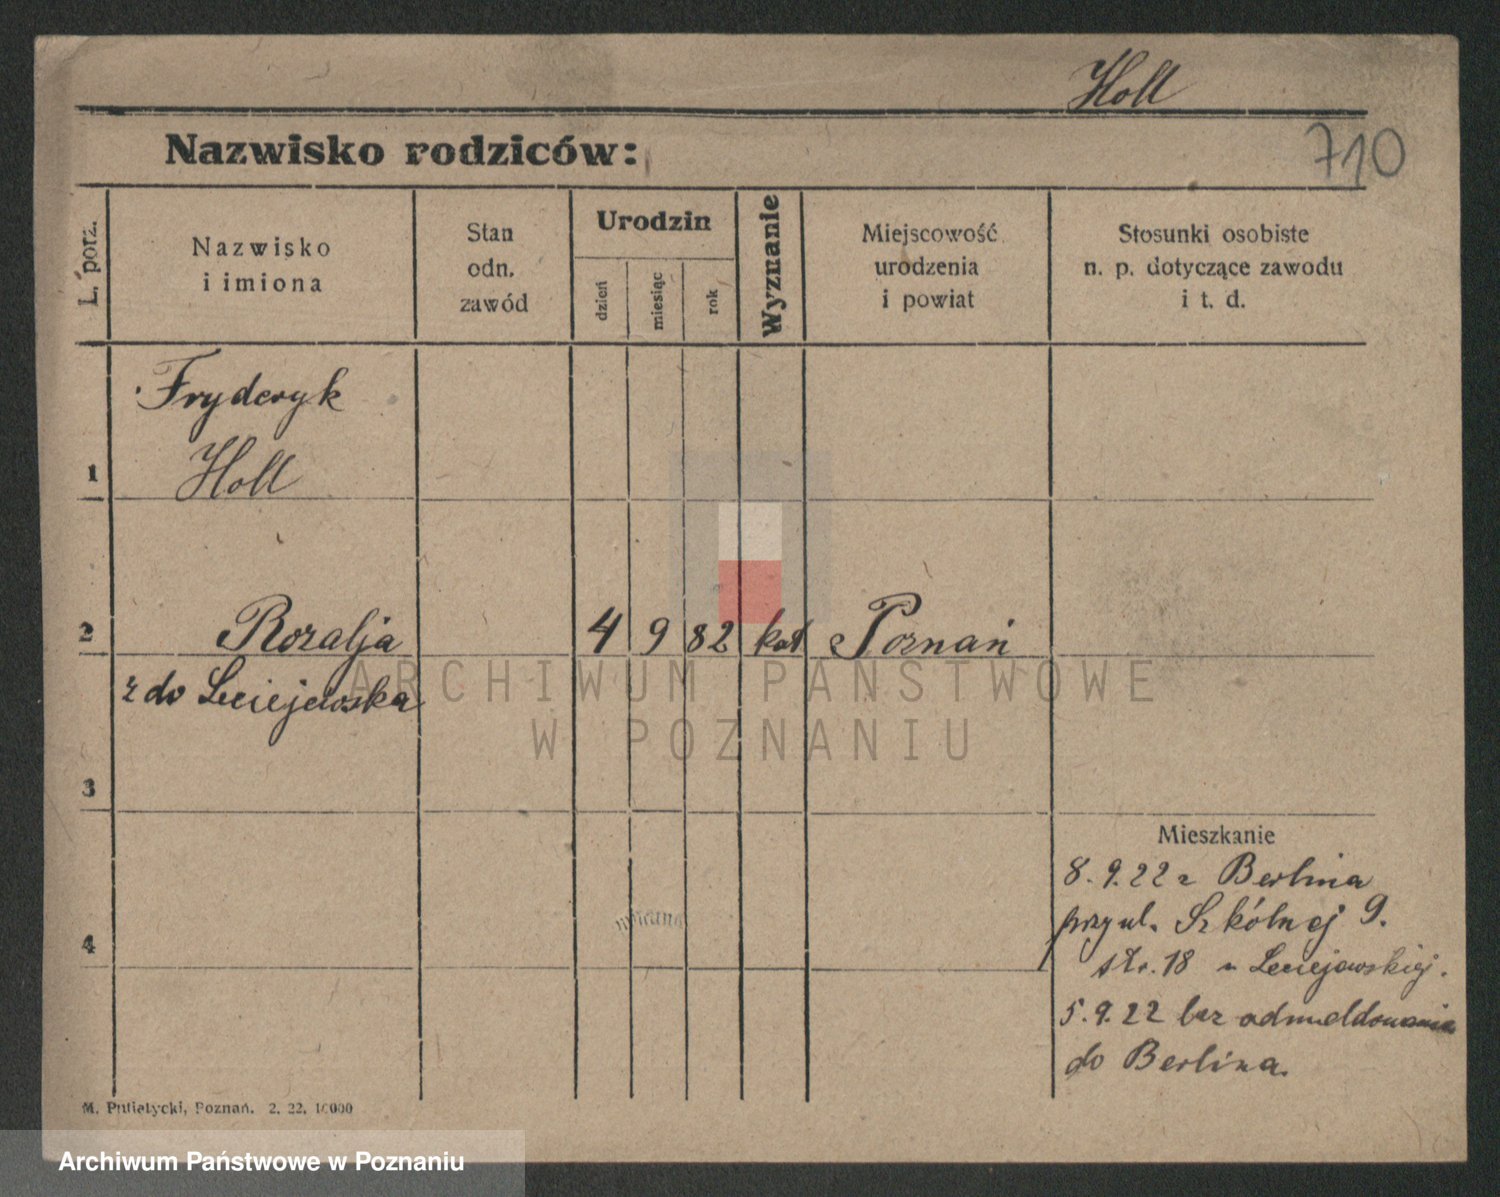 Holl
Nazwisko rodziców:
710
L. porz.
Nazwisko
i imiona
Stan
odn.
zawód
Urodzin
dzień
miesiąc
rok
Wyznanie
Miejscowość
urodzenia
i powiat
Stosunki osobiste
n. p. dotyczące zawodu
i t. d.
Fryderyk
1 Holl
2 Rozalja 4 9 82 kat Poznań
z do Leciejewska
3
Mieszkanie
8.9.22 z Berlina
przy ul. Szkólnej 9.
4
str. 18 u Leciejewskiej.
5.9.22 bez odmeldowania
do Berlina.
M. Putiatycki, Poznań. 2. 22. 10000
ARCHIWUM PAŃSTWOWE
W POZNANIU
Archiwum Państwowe w Poznaniu